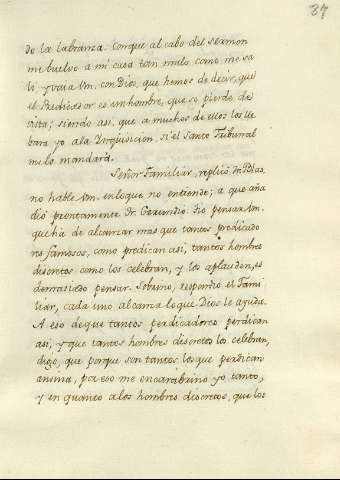 87
do la labranza. Conque al cabo del sermon
me buelvo a mi casa tan malo como me sa
li y vaia Vm. con Dios, que hemos de decir, que
el Predicador es un hombre, que se pierde de
vista; siendo asi, que a muchos de ellos los lle
bara yo a la Inquisicion, si el Santo Tribunal
me lo mandará.
Señor Familiar, replicó Dn. Blas,
no hable Vm. en loque no entiende; a que aña
dió prontamente Dr. Gerundio. Fio pensar Vm.
que há de alcanzar mas que tantos predicado
res famosos, como predican asi, tantos hombres
discretos como los celebran, y los aplauden, es
demasiado pensar. Sobrino, respondio el Fami
liar, cada uno alcanza loque Dios le ayuda.
A eso de que tantos perdicadores perdican
asi, y que tantos hombres discretos los celebran,
digo, que porque son tantos los que perdican
ansina, por eso me encarabrino yo tanto,
y en quanto a los hombres discretos, que los